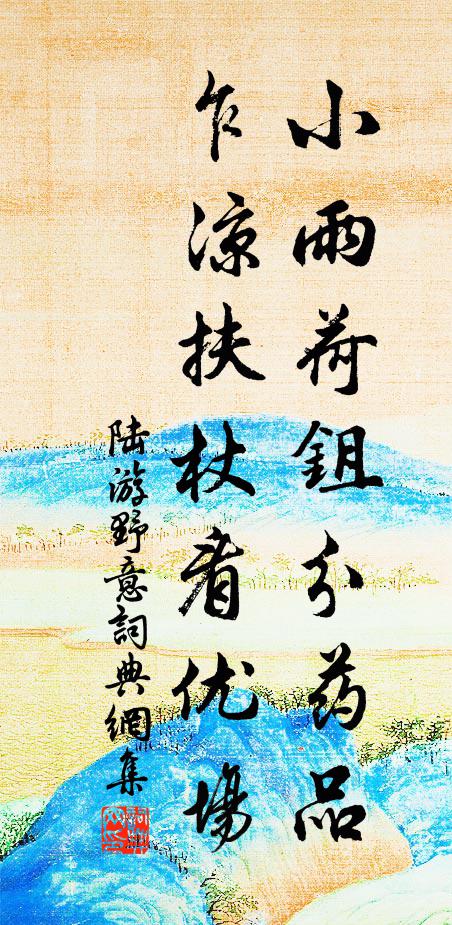 小雨荷鉏分药品
乍凉扶杖看优場
陆游野意詞典網集